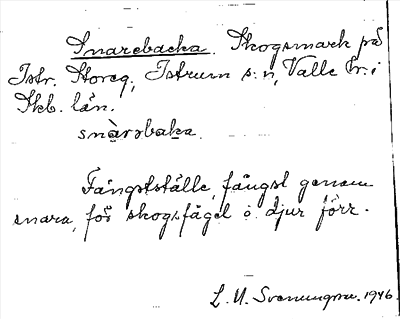 Snarebacka. Skogsmark på
Istr. Storeg, Istrum s:n, Valle hr. i
Skb. län.
snàrəbaka
Fångstställe, fångst genom
snara, för skogsfågel o. djur förr.
L. M. Svenungsson. 1946.